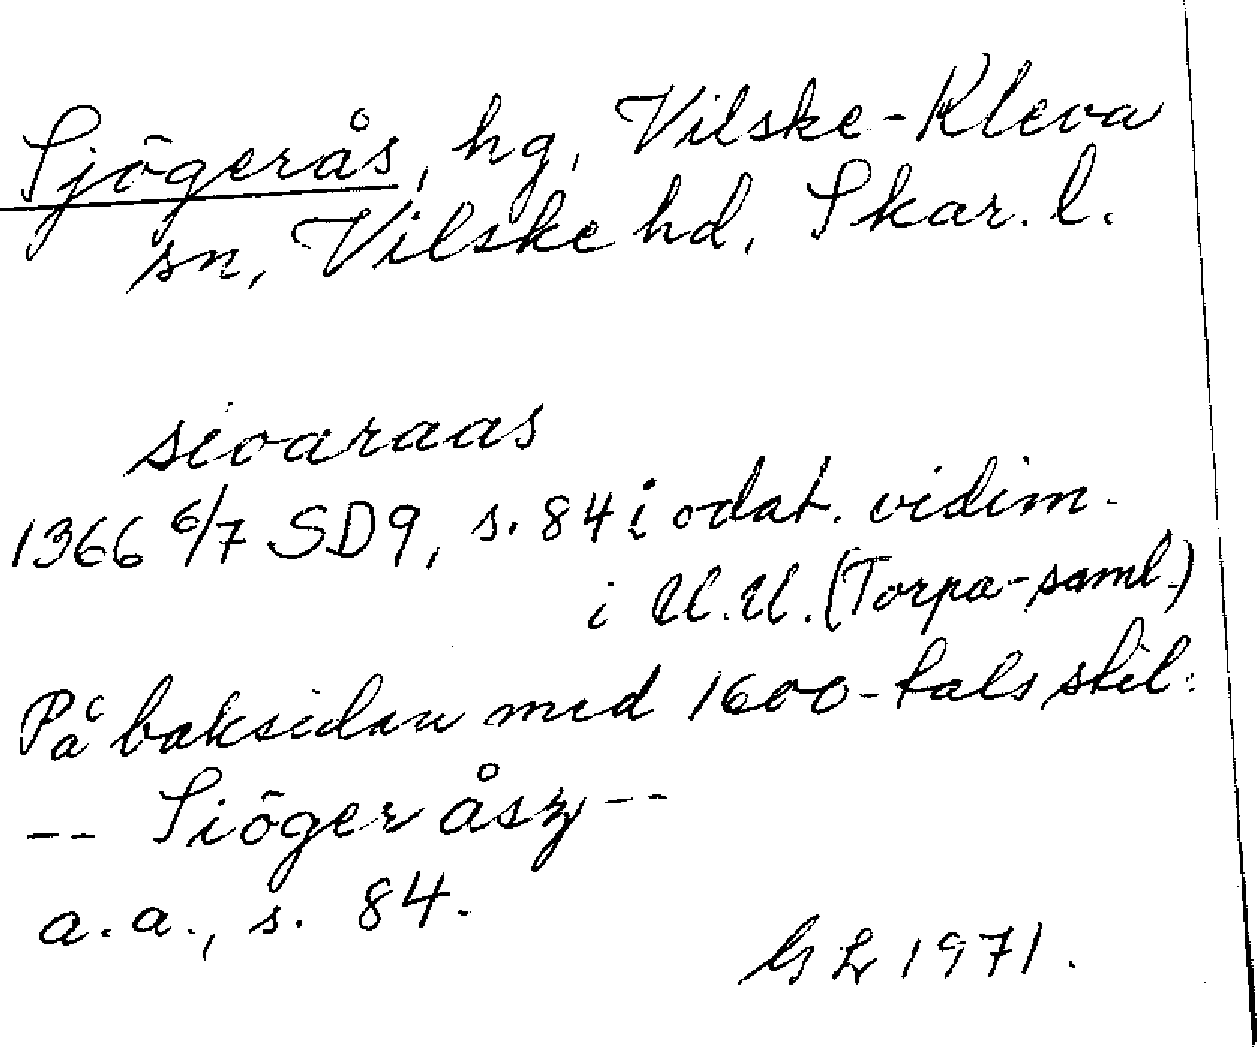 Sjögerås, hg, Vilske-Kleva
sn, Vilske hd, Skar. l.
sioaraas
1366 6/7 SD9, s. 84 i odat. vidim.
i U.U. (Torpa-saml.)
På baksidan med 1600-tals stil:
-- Siöger åsz --
a.a., s. 84.
GL 1971.